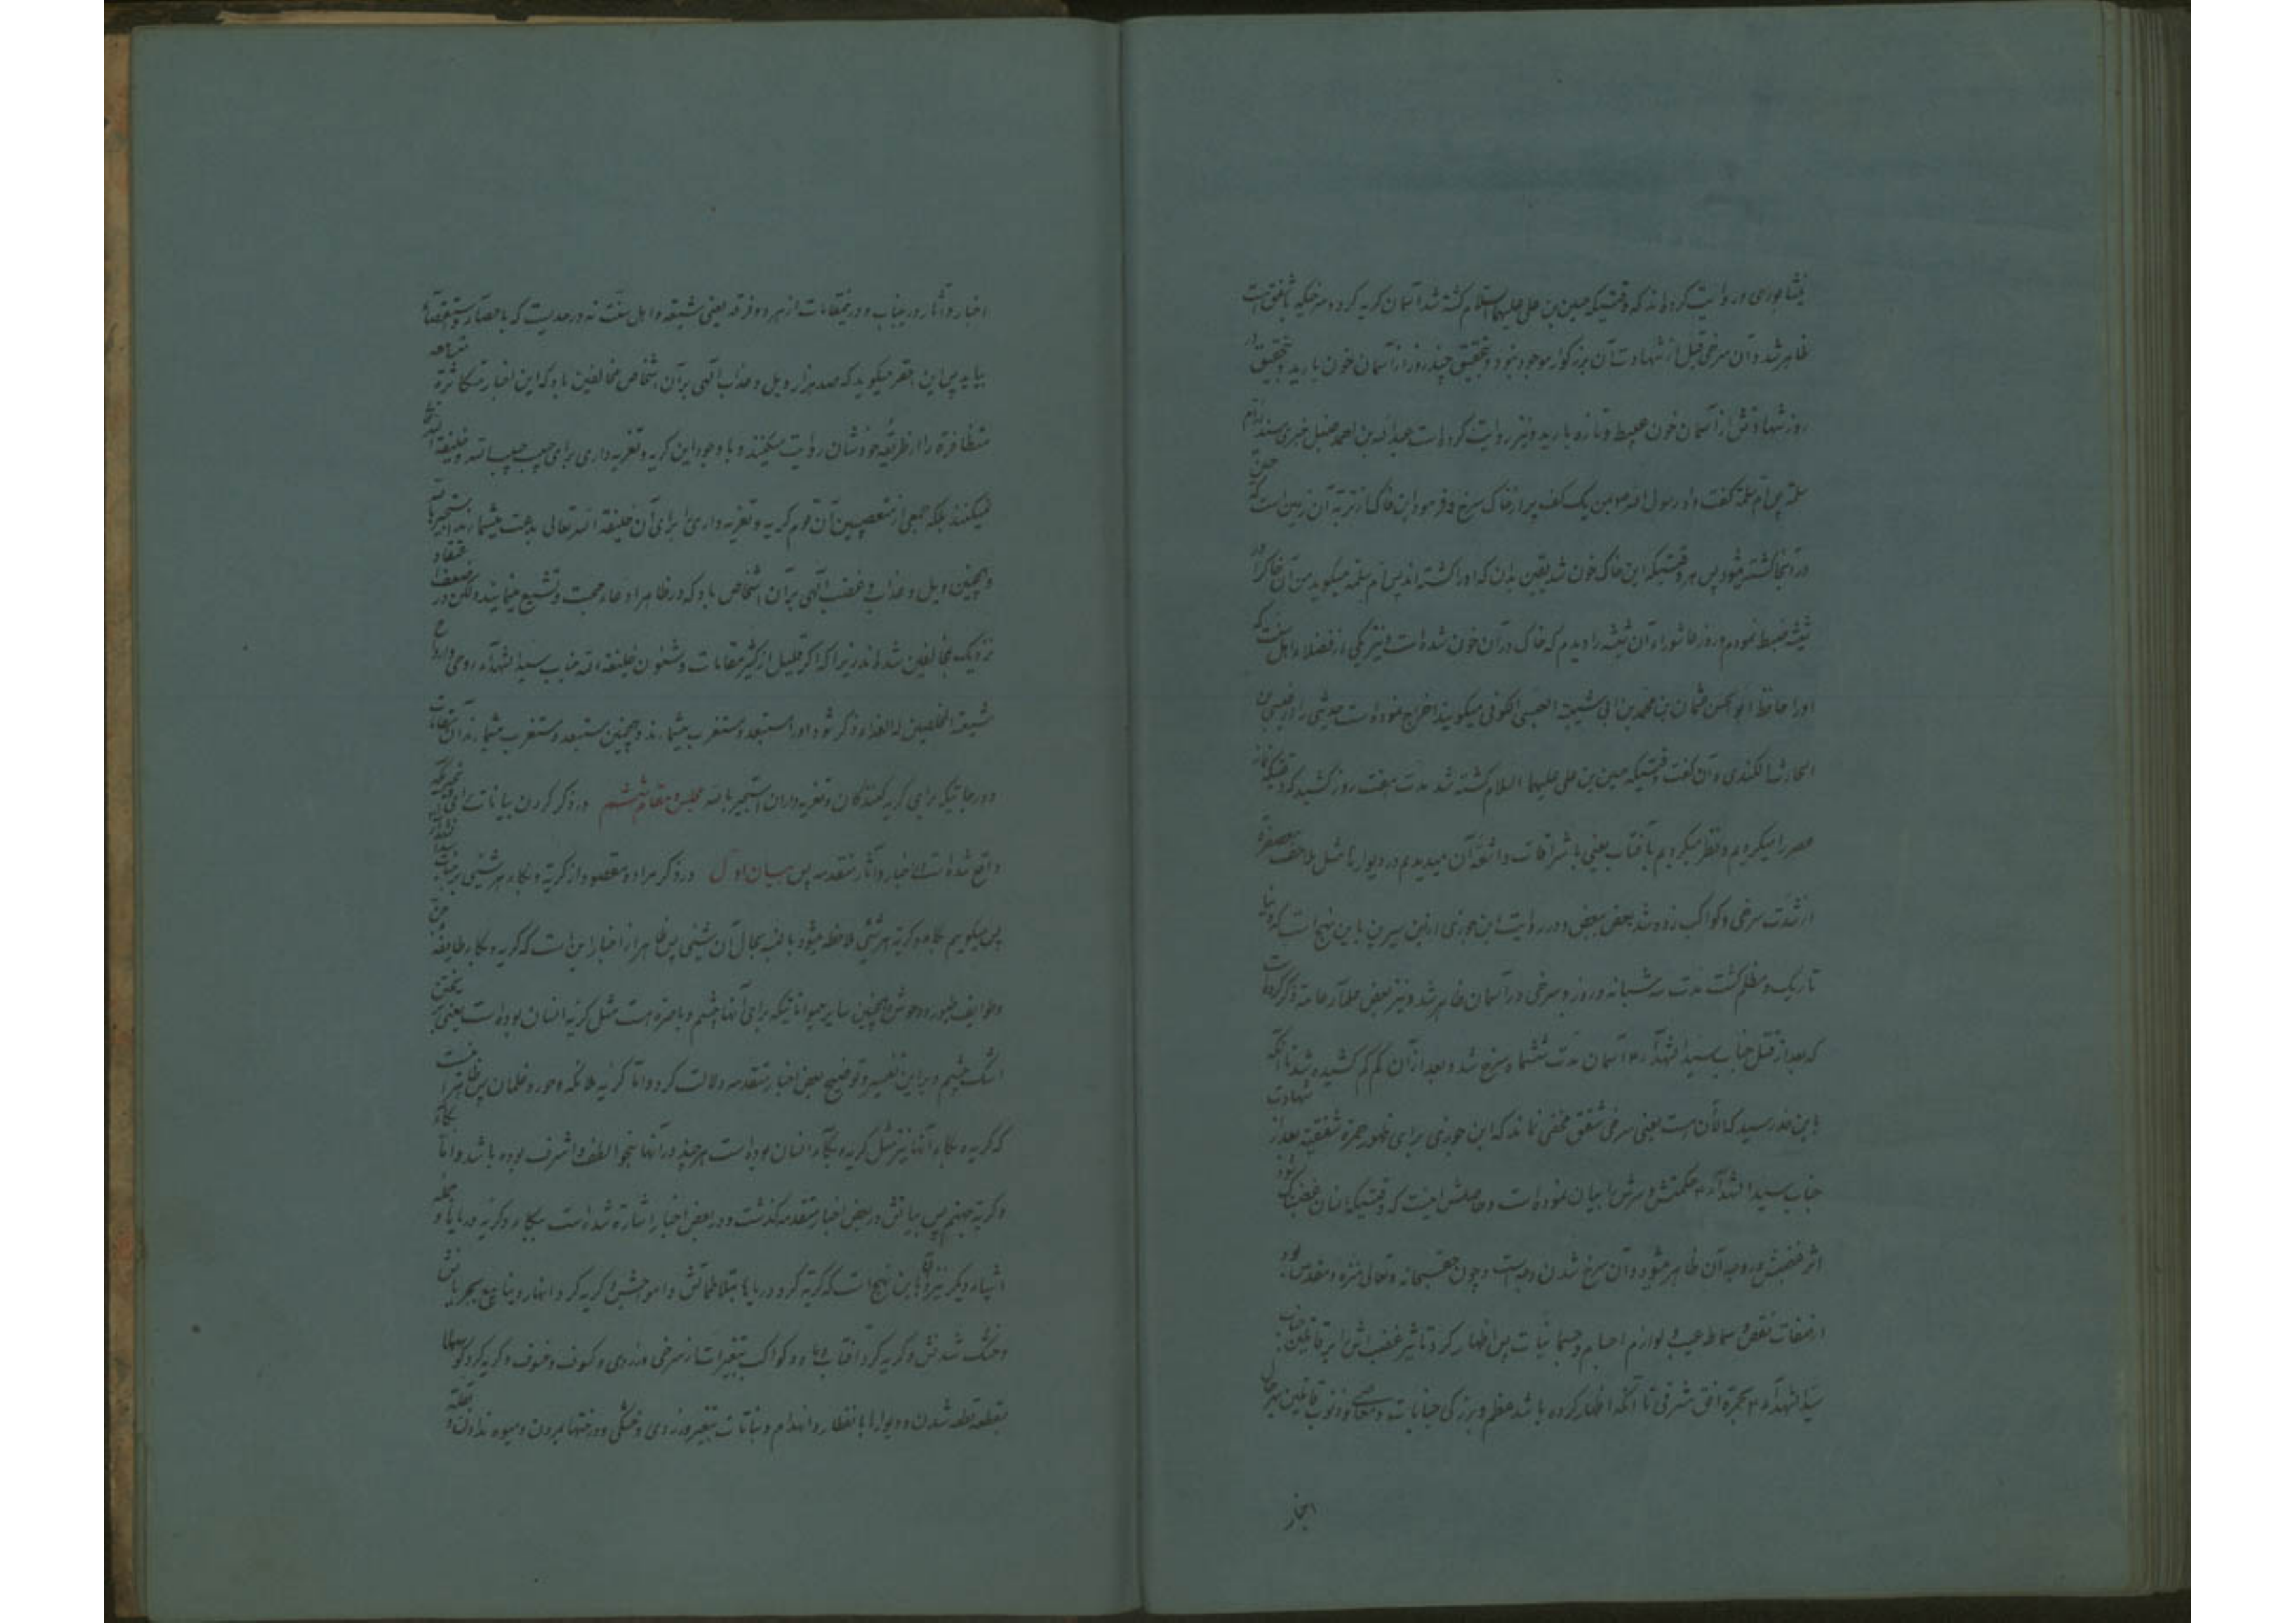 نیشابوری روایت کرده‌اند که وقتیکه حسین بن علی علیهما السلام کشته شد آسمان گریه کرد و سرخیکه با شفق است
ظاهر شد و آن سرخی قبل از شهادت آن بزرگوار موجود نبود و بتحقیق چند روز از آسمان خون بارید و بتحقیق در
روز شهادتش از آسمان خون عبیط و تازه بارید و نیز روایت کرده است عبدالله بن احمد حنبل خبری مسند
سلمه پس ام سلمه گفت داد رسول الله بمن یک کف پر از خاک سرخ و فرمود این خاک از تربة آن زمین است که حسین
در آنجا کشته میشود پس هر وقتیکه این خاک خون شد یقین بدان که او را کشته اند پس ام سلمه میگوید من آن خاکرا در
شیشه ضبط نمودم روز عاشوراء آن شیشه را دیدم که خاک در آن خون شده است و نیز یکی از فضلاء اهل سنت که
او را حافظ ابو الحسن عثمان بن محمد بن ابی شیبة العبسی الکوفی میگویند اخراج نموده است حدیثی را از عیسی بن
الحارث الکندی و آن گفت وقتیکه حسین بن علی علیهما السلام کشته شد مدت هفت روز کشید که وقتیکه نماز
عصر را میکردیم و نظر میکردیم بآفتاب یعنی باشراقات و اشعه آن میدیدیم در دیوارها مثل ملاحف معصفره
از شدت سرخی و کواکب زده شد بعض ببعض و در روایت ابن جوزی از ابن سیرین باین نهج است که دنیا
تاریک و مظلم گشت مدت سه شبانه و روز و سرخی در آسمان ظاهر شد و نیز بعض علماء عامه ذکر کرده است
که بعد از قتل جناب سید الشهداء ع آسمان مدت ششماه سرخ شد و بعد از آن کم کم کشیده شد تا آنکه
باین قدر رسید که الآن هست یعنی سرخی شفق مخفی نماند که ابن جوزی برای ظهور حمرة شفقیه بعد از شهادت
جناب سید الشهداء ع حکمتش و سرش را بیان نموده است و حاصلش اینست که وقتیکه انسان غضبناک شود
اثر غضبش در وجه آن ظاهر میشود و آن سرخ شدن وجه است و چون حق سبحانه و تعالی منزه و مقدس بود
از صفات نقص و سمات عیب و لوازم اجسام و جسمانیات پس اظهار کرد تاثیر غضبش را بر قاتلین جناب
سید الشهداء ع بحمرة افق مشرقی تا آنکه اظهار کرده باشد عظم و بزرگی جنایات و معاصی و ذنوب قاتلین
اخبار
اخبار و آثار در جناب و در مقامات از هر دو فرقه یعنی شیعه و اهل سنت نه در حدیست که باحصاء و استقصاء
بیاید پس این احقر میگوید که صد هزار ویل و عذاب الهی بر آن اشخاص مخالفین باد که این اخبار متکاثره
متظافره را از طریقه خودشان روایت میکنند و با وجود این گریه و تعزیه داری برای حبیب حبیب الله و خلیفة الله
نمیکنند بلکه جمعی از متعصبین آن قوم گریه و تعزیه داری را برای آن خلیفة الله تعالی بدعت میشمارند
و همچنین ویل و عذاب و غضب الهی بر آن اشخاص باد که در ظاهر ادعاء محبت و تشیع مینمایند ولکن در ضعف اعتقاد
نزدیک بمخالفین شده‌اند زیرا که اگر قلیل از کثیر مقامات و شئون خلیفة الله جناب سید الشهداء روحی و ارواح
شیعته المخلصین له الفداء ذکر شود او را مستبعد و مستغرب میشمارند و همچنین مستبعد و مستغرب میشمارند آن مقامات
و درجاتیکه برای گریه کنندگان و تعزیه داران است مجلس و مقام ششم در ذکر کردن بیانات
واقع شده است در اخبار و آثار متقدمه پس بیان اول در ذکر مراد و مقصود از گریه و بکاء هر شیئی بر جناب
پس میگوییم بکاء و گریه هر شیئی ملاحظه میشود بالنسبه بحال آن شیئی پس ظاهر از اخبار این است که گریه و بکاء طایفه جن
و طوایف طیور و وحوش و همچنین سایر حیوانات که برای آنها چشم و باصره هست مثل گریه انسان بوده است یعنی ریختن
اشک چشم و بر این تفسیر و توضیح بعض اخبار متقدمه دلالت کرد و اما گریه ملائکه و حور و غلمان پس ظاهرا
که گریه و بکاء آنها نیز مثل گریه و بکاء انسان بوده است هر چند در آنها بنحو الطف و اشرف بوده باشد و اما بکاء
و گریه جهنم پس بیانش در بعض اخبار متقدمه گذشت و در بعض اخبار اشاره شده است بکاء و گریه دریاها و
اشیاء دیگر نیز باین نهج است که گریه کرد دریاها بتلاطماتش و امواجش و گریه کرد انهار و ینابیع
و خشک شدنش و گریه کرد آفتاب و ماه و کواکب بتغیرات از سرخی و زردی و کسوف و خسوف و گریه کرد کوهها
بقطعه قطعه شدن و دیوارها بانفطار و انهدام و نباتات بتغیر و زردی و خشکی و درختها بمردن و میوه ندادن و